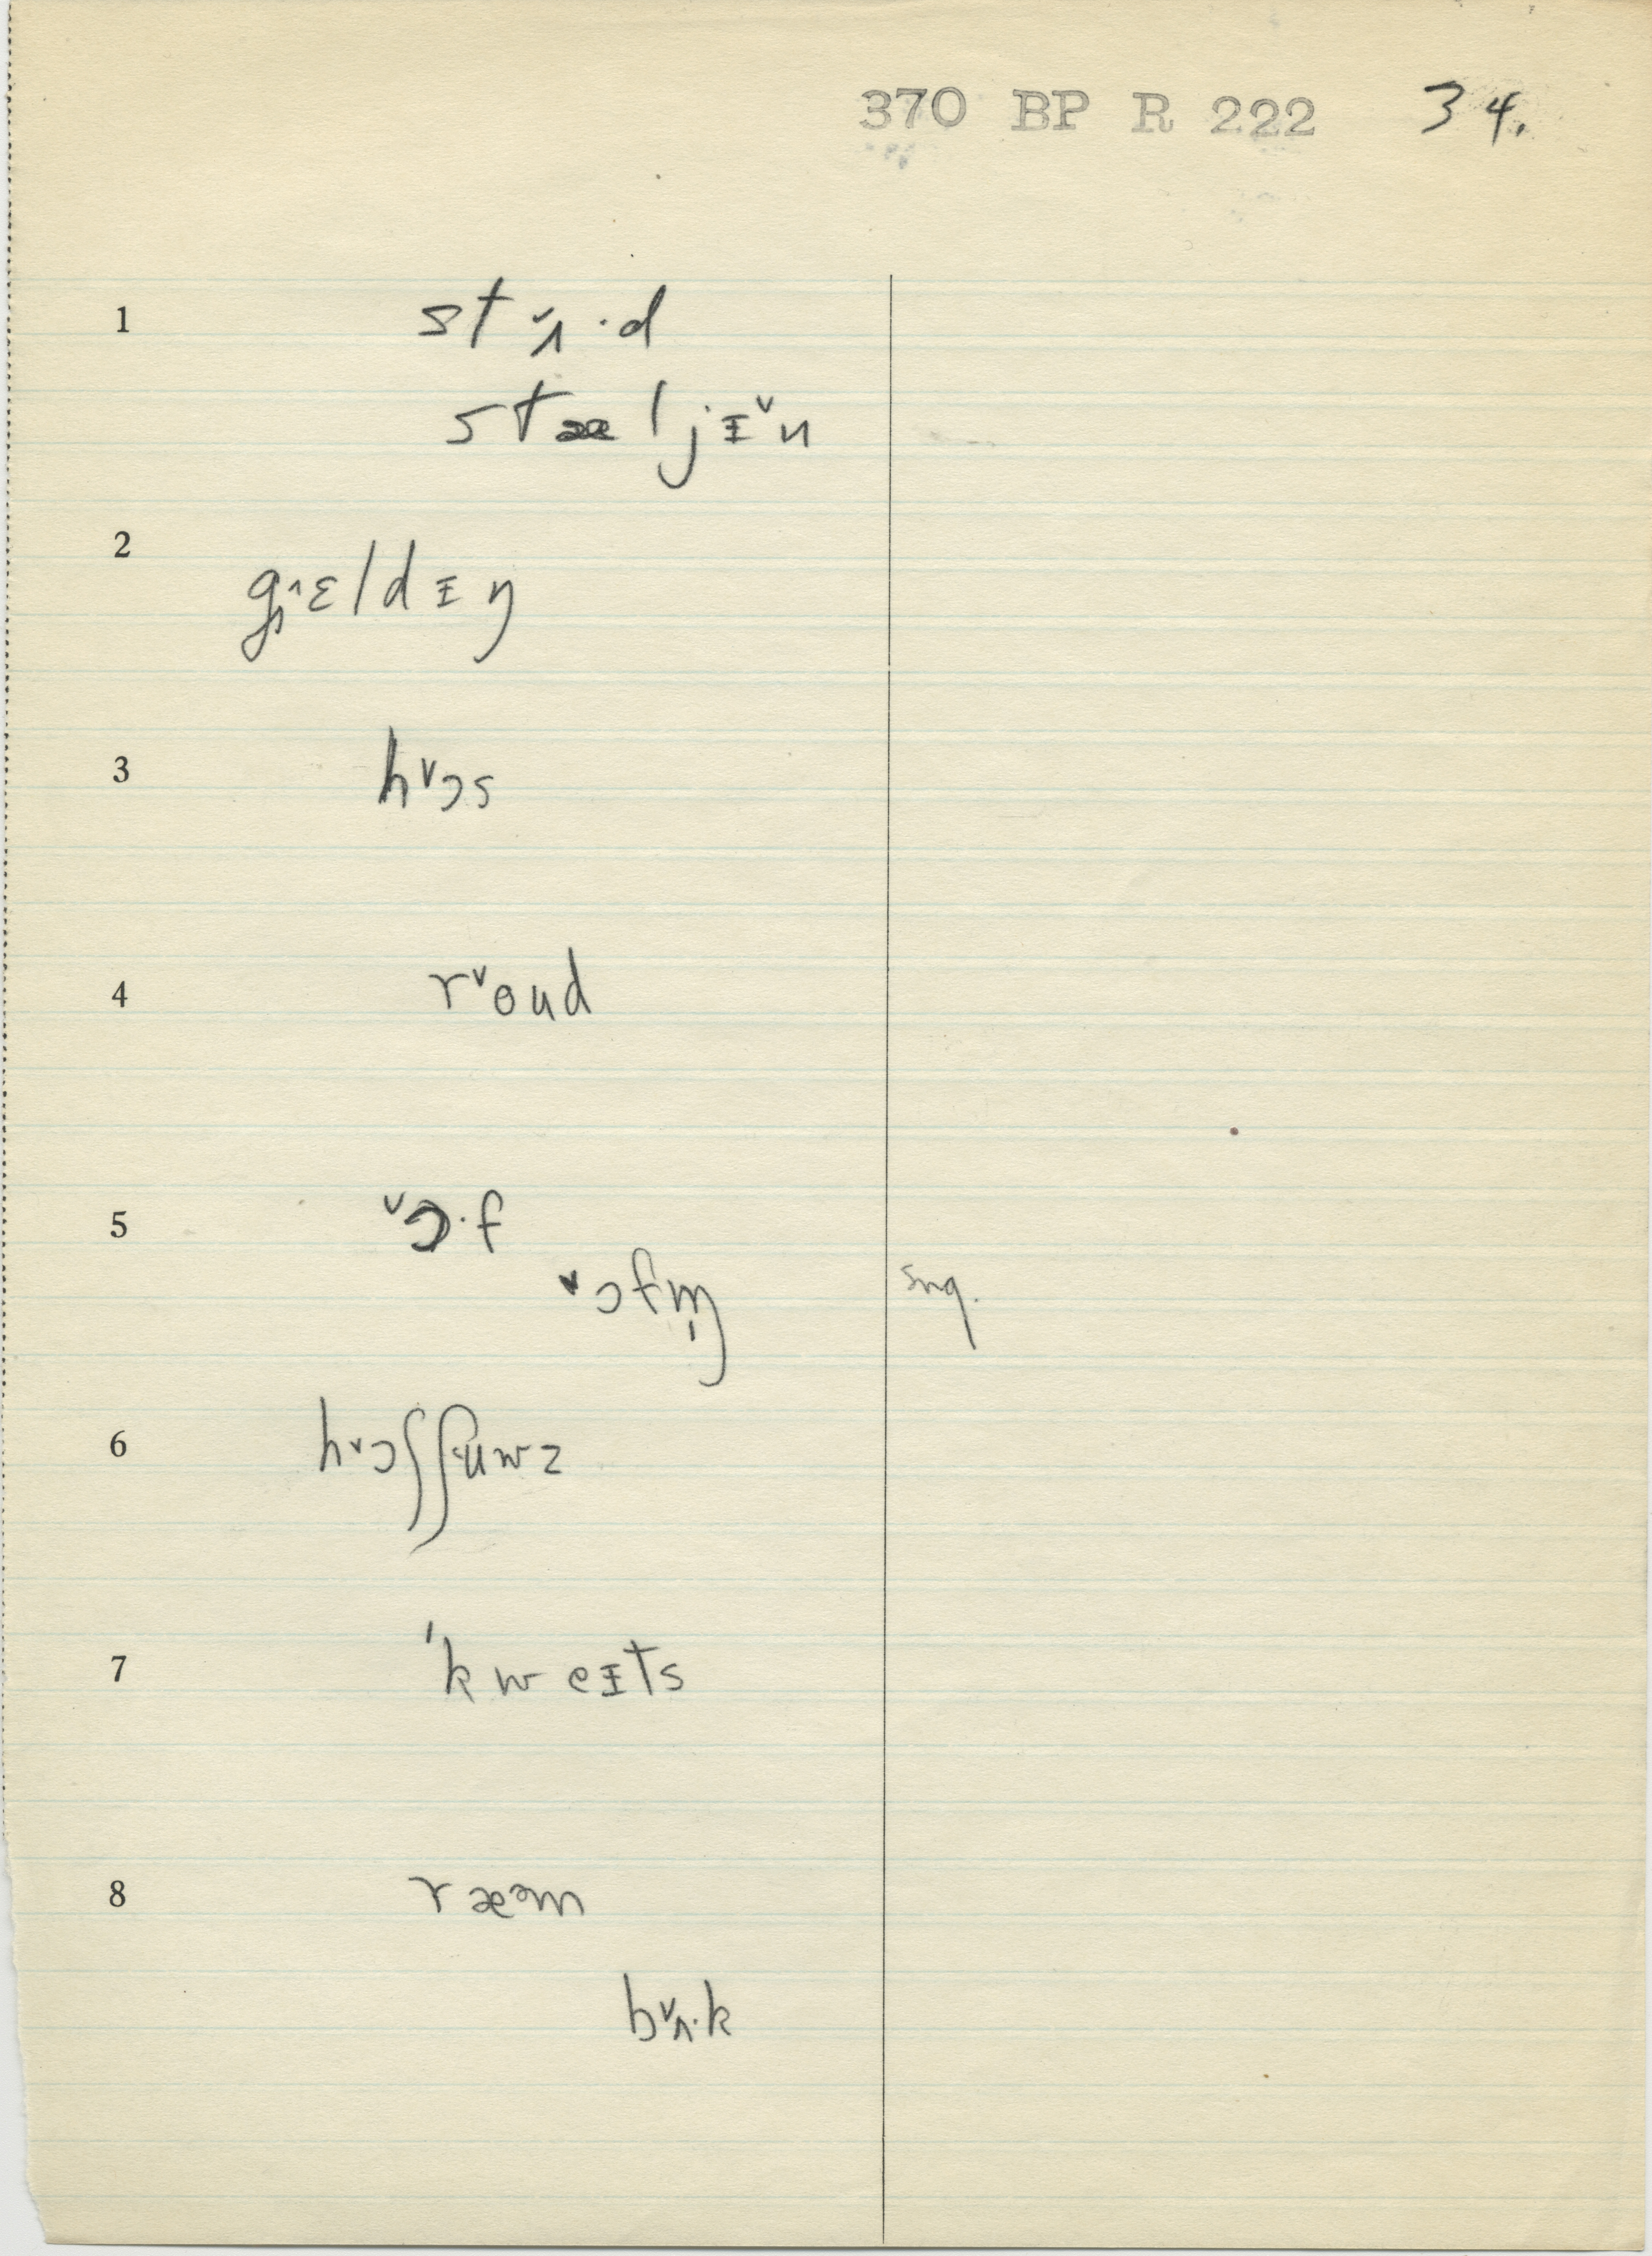 370 BP R 222 34.
1 st ˇɿ·d
stæljɪˇn
2 gᶺɛldɪŋ
3 hˇɔs
4 rˇoud
5 ˇɔ·f
ˇɔfm̩ sng.
6 hˇɔʃʃuwz
7 ˈkweɪts
8 ræəm
bˇʌ·k